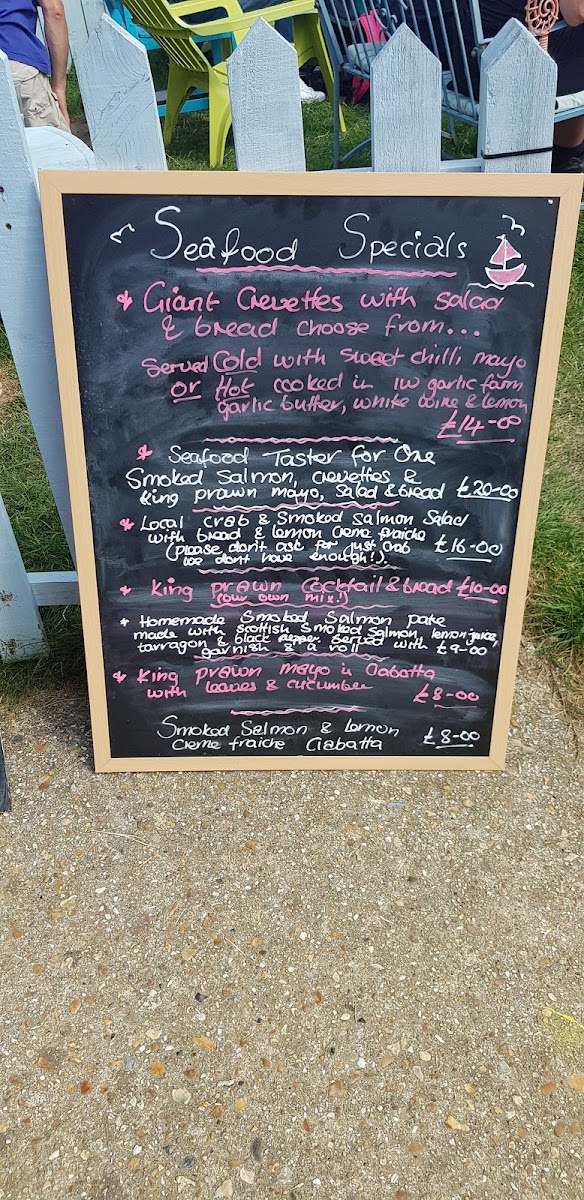 Seafood Specials
* Giant Crevettes with salad
& bread choose from...
Served Cold with sweet chilli mayo
or Hot cooked in IW garlic farm
garlic butter, white wine & lemon
£14-00
* Seafood Taster for One
Smoked Salmon, crevettes &
king prawn mayo, salad & bread £20-00
* Local crab & Smoked Salmon Salad
with bread & lemon creme fraiche
(please don't ask for just crab £16-00
we don't have enough!).
* King prawn Cocktail & bread £10-00
(our own mix!)
* Homemade Smoked Salmon pate
made with scottish smoked salmon, lemon juice,
tarragon & black pepper. served with £9-00
garnish & a roll
* King prawn mayo in Ciabatta
with leaves & cucumber £8-00
Smoked Salmon & Lemon
creme fraiche Ciabatta £8-00